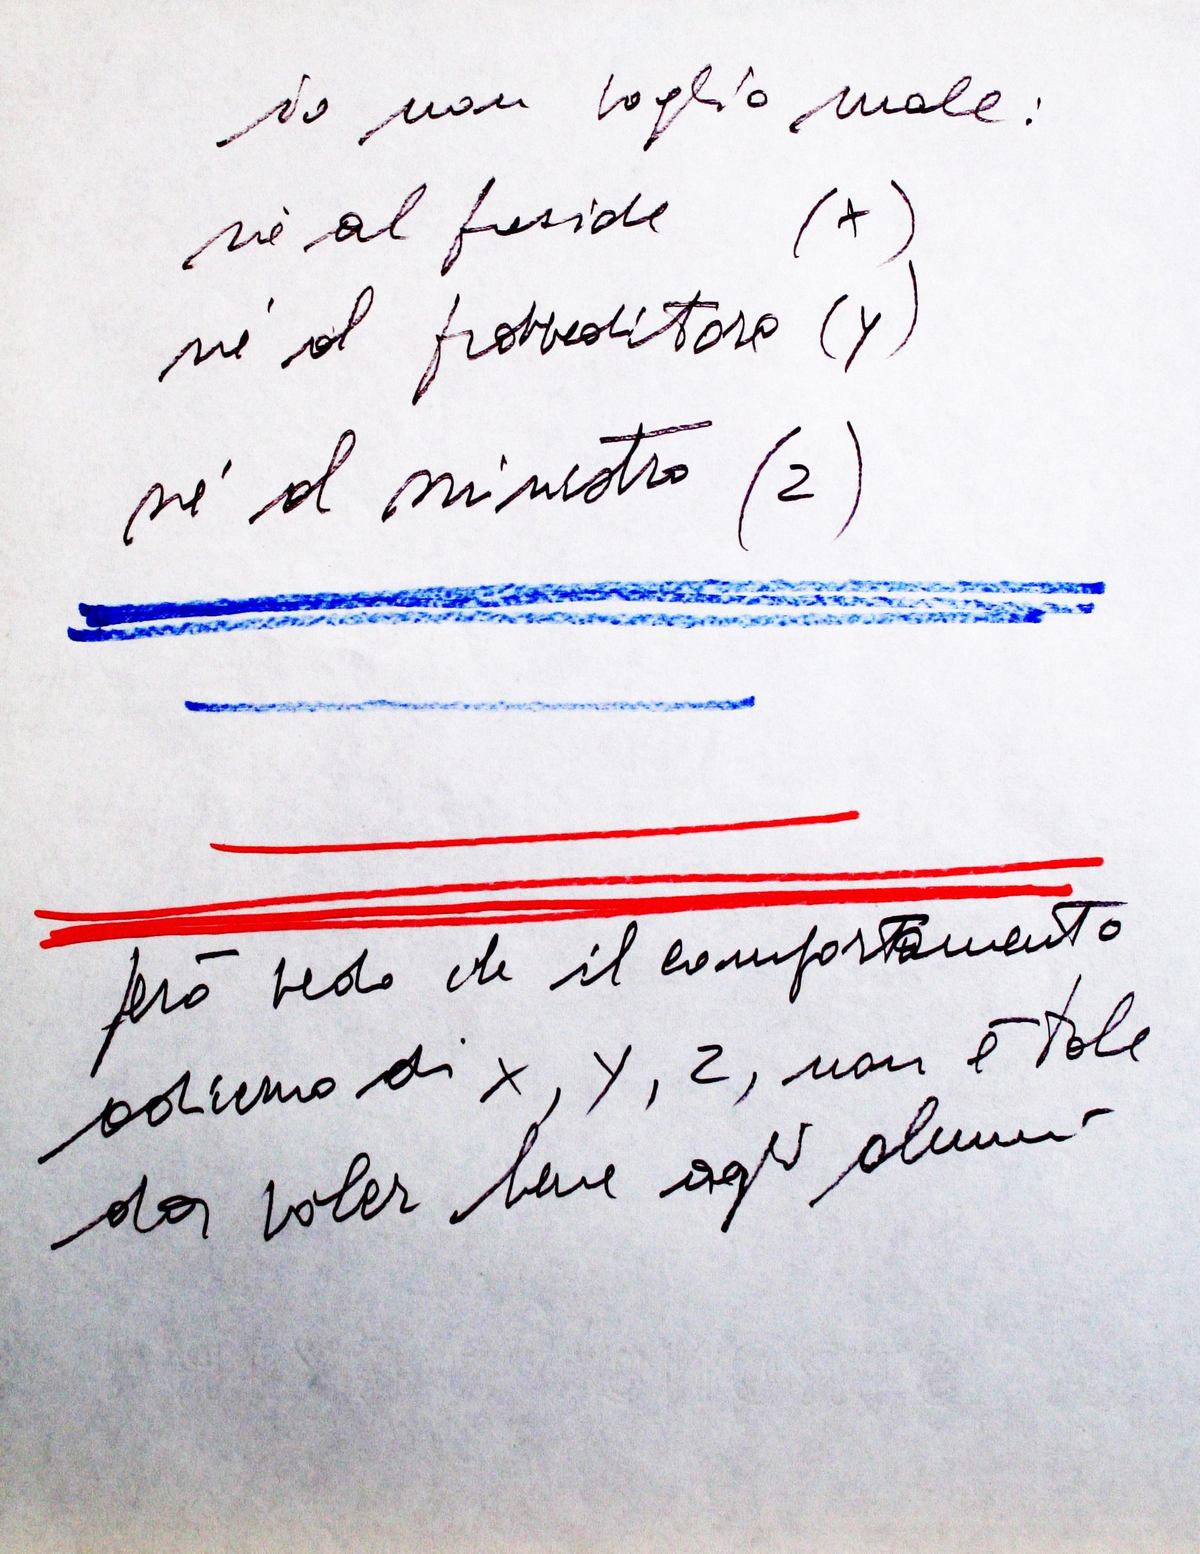 io non voglio male:
né al preside (x)
né al provveditore (y)
né al ministro (z)
però vedo che il comportamento
odierno di x, y, z, non è tale
da voler bene agli alunni